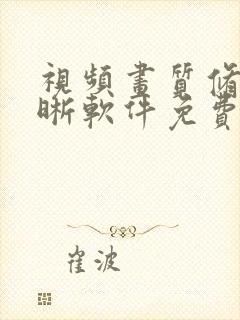 視頻畫質修
晰軟件免費
崔波